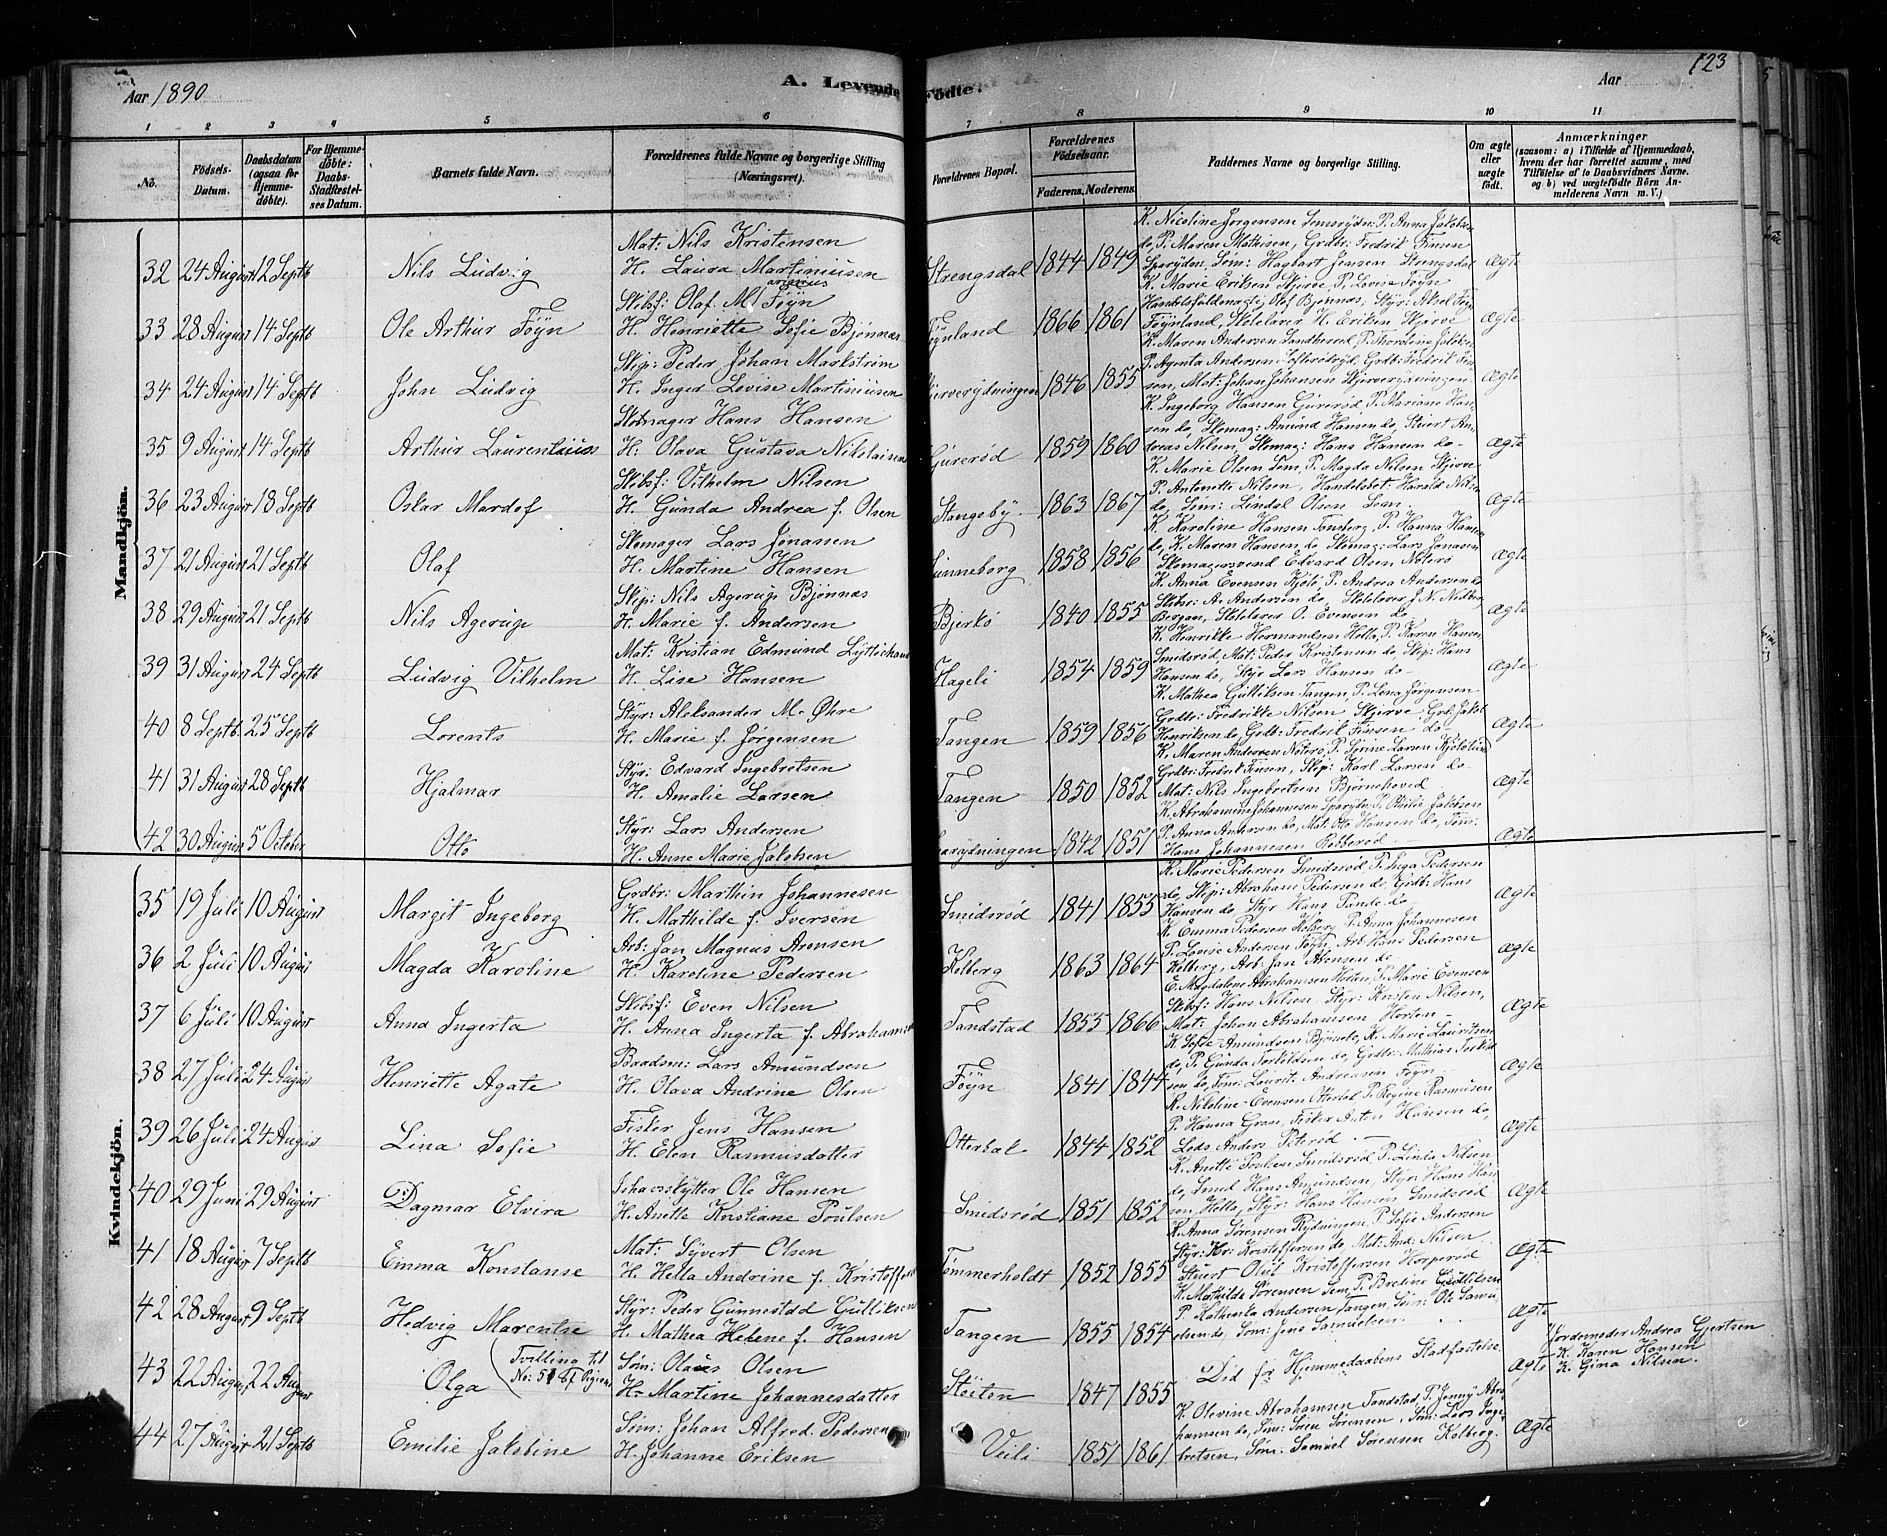 Aar 1890
A. Levende Fødte.
Aar
123
1 2 3 4 5 6 7 8 9 10 11
No.
Fødsels-Datum.
Daabsdatum (ogsaa for Hjemme-døbte).
For Hjemme-døbte: Daabs-Stadfæstel-ses Datum.
Barnets fulde Navn.
Forældrenes fulde Navne og borgerlige Stilling (Næringsvei).
Forældrenes Bopæl.
Forældrenes Fødselsaar.
Faderens. Moderens.
Faddernes Navne og borgerlige Stilling.
Om ægte eller uægte født.
Anmærkninger
(saasom: a) i Tilfælde af Hjemmedaab, hvem der har forrettet samme, med Tilføielse af to Daabsvidners Navne, og b) ved uægtefødte Børn An-melderens Navn m. V.)
Mandkjøn.
Mat: Nils Kristensen
32 24 August 12 Septb Nils Ludvig H. Laura Martiniusen Strengsdal 1844 1849 Ægte
K. Nicoline Jørgensen P. Anna Jakobsen
do, P. Maren Mathisen, Grdbr: Fredrik Finsen
Hagbart Jensen Strengsdal
K. Marie Eriksen Skjerve P. Lovise Føyn
Skibsf: Olaf Marinius Føyn
33 28 August 14 Septb Ole Arthur Føyn H. Henriette Sofie Bjønnæs Føynland 1866 1861 Ægte
Olaf Bjønnæs, Styr: Aksel Føyn
Føynland, Skolelærer H. Eriksen Skjerve
K. Maren Andersen P. Thordine Jakobsen
Skip: Peder Johan Markstrøm
34 24 August 14 Septb John Ludvig H. Inger Lovise Martiniusen Skjerverydningen 1846 1855 Ægte
P. Agenta Andersen Grdb: Fredrik Fin-
sen, Mat: Johan Johansen Skjerverydningen
K. Ingeborg Hansen Gurerød, P. Mariane Han-
Skomager Hans Hansen
35 9 August 14 Septb Arthur Laurentius H. Olava Gustava Nikolaisen Gurerød 1859 1860 Ægte
sen do, Skomag: Amund Hansen do, Stuert An-
dreas Nilsen, Skomag: Hans Hansen do
K. Marie Olsen Sem, P. Magda Nilsen Skjerve
Skibsf: Vilhelm Nilsen
36 23 August 18 Septb Oskar Mardof H. Gunda Andrea f. Olsen Stangeby. 1863 1867 Ægte
P. Antonette Nilsen, Handelsbet: Harald Nilsen
do, Søm: Lindøl Olsen Sem
K. Karoline Hansen Tønsberg, P. Hanna Hansen
Skomager Lars Jonassen
37 21 August 21 Septb Olaf H. Martine Hansen Sunneborg 1858 1856 Ægte
do, K. Maren Hansen do, Skomag: Lars Jonassen
Skomagersvend Edvard Olsen Nøterø
K. Anna Evensen Kjøle, P. Andrea Andersen do
Skip: Nils Agerup Bjønnæs
38 29 August 21 Septb Nils Agerup H. Marie f. Andersen Bjerkø 1840 1855 Ægte
Skibsr: A. Andersen do Skolelærer J. N.
Bergan, Skolelærer O. Evensen do
K. Henrikke Hermandsen Hella, P. Karen Hansen
Mat: Kristian Edmund
39 31 August 24 Septb Ludvig Vilhelm H. Lise Hansen Hageli 1854 1859 Ægte
Smidsrød, Mat: Peder Kristensen do, Skip: Hans
Hansen do, Styr Lars Hansen do
K. Mathea Gulliksen Tangen, P. Lena Jørgensen
Styr: Aleksander M. Øhre
40 8 Septb. 25 Septb Lorents H. Marie f. Jørgensen Tangen 1859 1856 Ægte
Grdbr: Fredrikke Nilsen, Skjerve Grdb: Jakob
Henriksen do, Grdb: Fredrik Finsen do
K. Maren Andersen Nøterø, P. Larsen
Styr: Edvard Ingebretsen
41 31 August 28 Septb Hjalmar H. Amalie Larsen Tangen 1850 1852 Ægte
Grdbr: Fredrik Finsen, Skip: Karl Larsen do
Mat: Nils Ingebretsen Bjørnehoved
K. Abrahamine Johannesen P. Othilie Jakobsen
Styr: Lars Andersen
42 30 August 5 October Otto H. Anne Marie Jakobsen 1842 1851 Ægte
P. Anna Andersen do, Mat: Otto Hansen do, Tøm:
Hans Johannesen Robberød
Kvindekjøn.
Grdbr: Marthin Johannesen
35 19 Juli 10 August Margit Ingeborg H. Mathilde f. Iversen Smidsrød 1841 1855 Ægte
K. Marie Pedersen Smidsrød P. Inga Pedersen
do, Skip: Abraham Pedersen do, Grdb: Hans
Hansen do Styr Hans Pinde do
K. Emma Pedersen Kolberg P. Anna Johannesen
Arb: Jan Magnus Arensen
36 2 Juli 10 August Magda Karoline H. Karoline Pedersen Kolberg 1863 1864 Ægte
P. Lovise Andersen Føyn, Arb: Hans Pedersen
Kolberg, Arb: Jan Arensen do
E. Magdalene Abrahamsen P. Marie Evensen
Skibsf: Even Nilsen
37 6 Juli 10 August Anna Ingerta H. Anna Ingerta f. Abrahamsen Tandstad 1855 1866 Ægte
Skibsf: Hans Nilsen, Styr: Kristen Nilsen,
Mat: Johan Abrahamsen Horten
K. Sofie Amundsen K. Marie Lauritsen
Baadsm: Lars Amundsen
38 27 Juli 24 August Henriette Agate H. Olava Andrine Olsen Føyn 1841 1844 Ægte
do, P. Gunda Torkildsen do, Grdbr: Mathias Torkild-
sen do, Tøm: Laurit: Andreasen Føyn
K. Nikoline Evensen Otterbæk P. Regine Rasmusen
Fisker Jens Hansen
39 26 Juli 24 August Lina Sofie H. Elen Rasmusdatter Otterbæk 1844 1852 Ægte
P. Hanna Gran, Fisker Anton Hansen do,
Lods Anders Peterød
K. Anette Poulsen Smidsrød P. Linda Nilsen
Ishavsskytter Ole Hansen
40 29 Juni 29 August Dagmar Elvira H. Anette Kristiane Poulsen Smidsrød 1851 1852 Ægte
do, Smed Hans Amundsen, Styr: Hans Han-
sen, Hella, Styr: Hans Hansen Smidsrød
K. Anna Sørensen Rydningen, P. Sofie Andersen
Mat: Syvert Olsen
41 18 August 7 Septb Emma Konstanse H. Hella Andrine f. Kristoffersen Tømmerholdt 1852 1855 Ægte
Styr: Kristoffersen do, Mat: And: Nilsen
Stuert Oluf Kristoffersen Horperød
K. Mathilde Sørensen Sem, P. Bredine Gulliksen
Styr: Peder Gunnestad Gulliksen
42 28 August 9 Septb Hedvig Marentse H. Mathea Helene f. Hansen Tangen 1855 1854 Ægte
P. Kathinka Andersen Tangen, Søm: Ole Samu-
elsen do, Søm: Jens Samuelsen
43 22 August 22 August Olga (Tvilling til No: 51 af Pigerne Søm: Olaus Olsen
H. Martine Johannesdatter Støiten 1847 1855
Død før Hjemmedaabens Stadfæstelse Ægte
Jordemoder Andrea Gjertsen
K. Karen Hansen
K. Gina Nilsen.
Søm: Johan Alfred Pedersen
44 27 August 21 Septb Emilie Jakobine H. Johanne Eriksen Veili 1851 1861 Ægte
K. Olevine Abrahamsen Tandstad P. Jenny Abra-
hamsen do, Søm: Søren Sørensen, Søm: Lars Inge-
bretsen, Søm: Samuel Sørensen Kolberg.